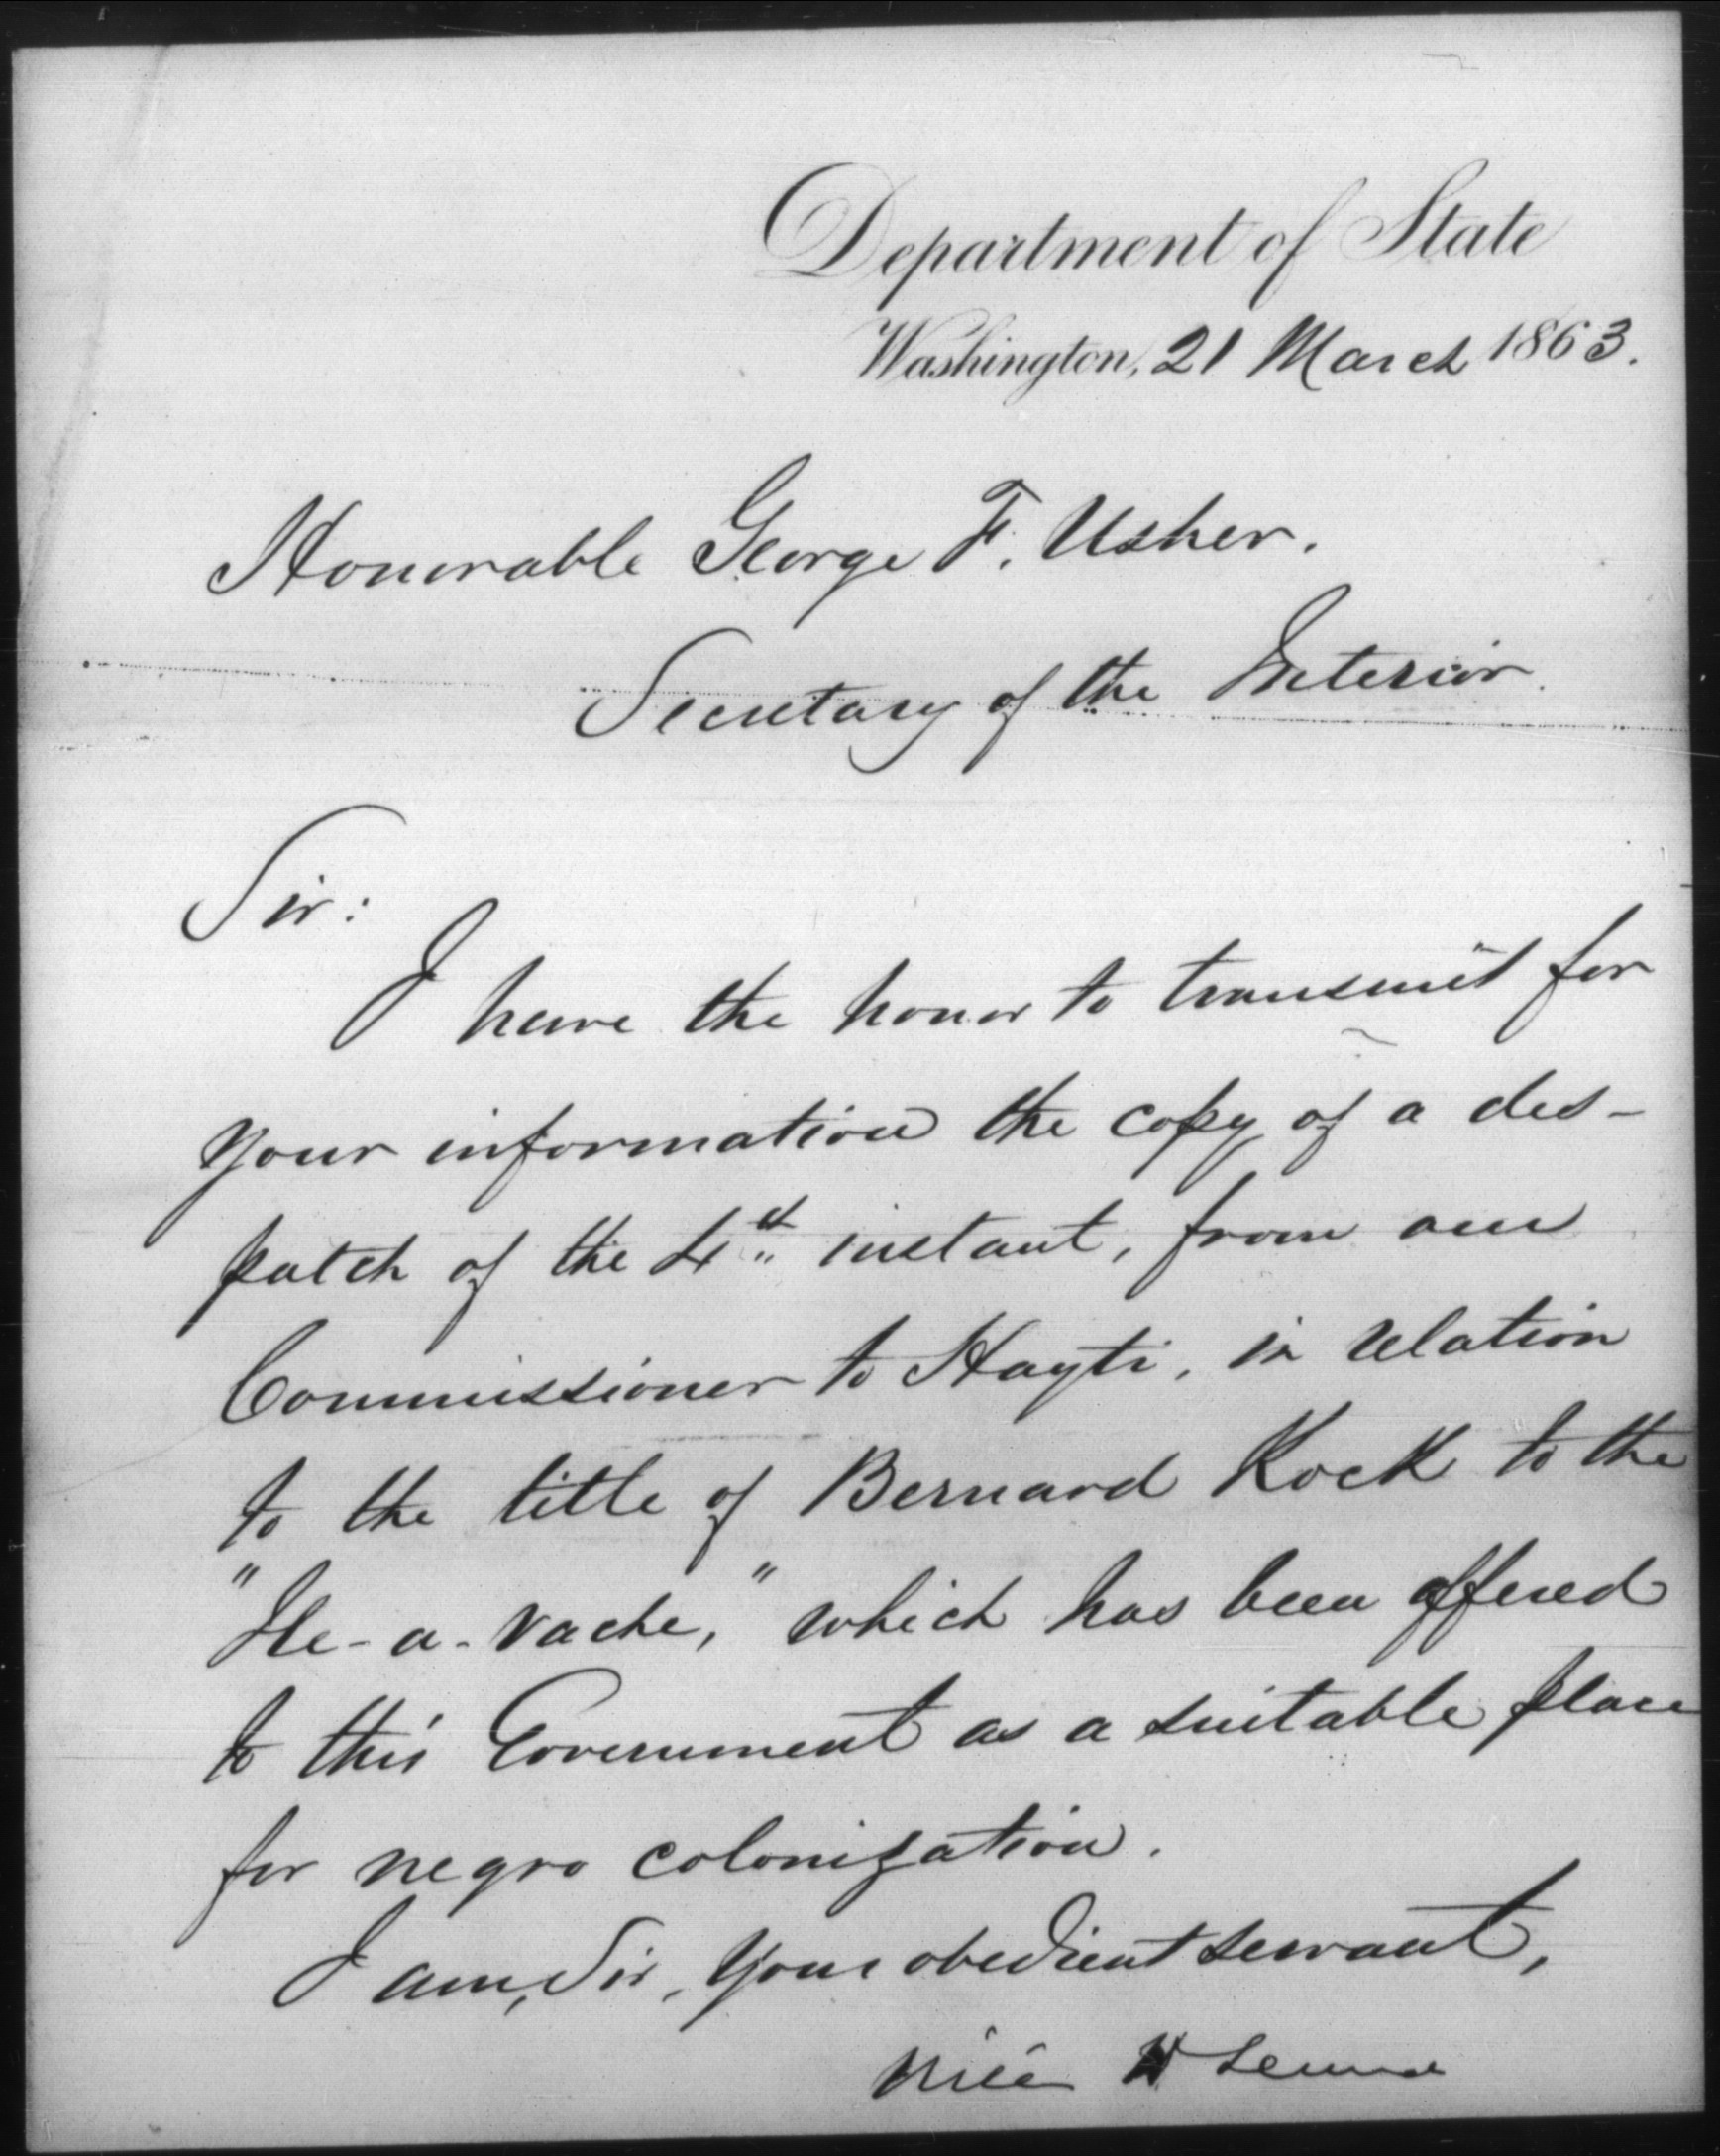 Department of State
Washington, 21 March 1863.
Honorable George F. Usher.
Secretary of the Interior.
Sir:
I have the honor to transmit for
your information the copy of a des-
patch of the 4th instant, from our
Commissioner to Hayti, in relation
to the title of Bernard Kock to the
"Ile-a-Vache," which has been offered
to this Government as a suitable place
for negro colonization.
I am, Sir, Your obedient servant,
William H Seward